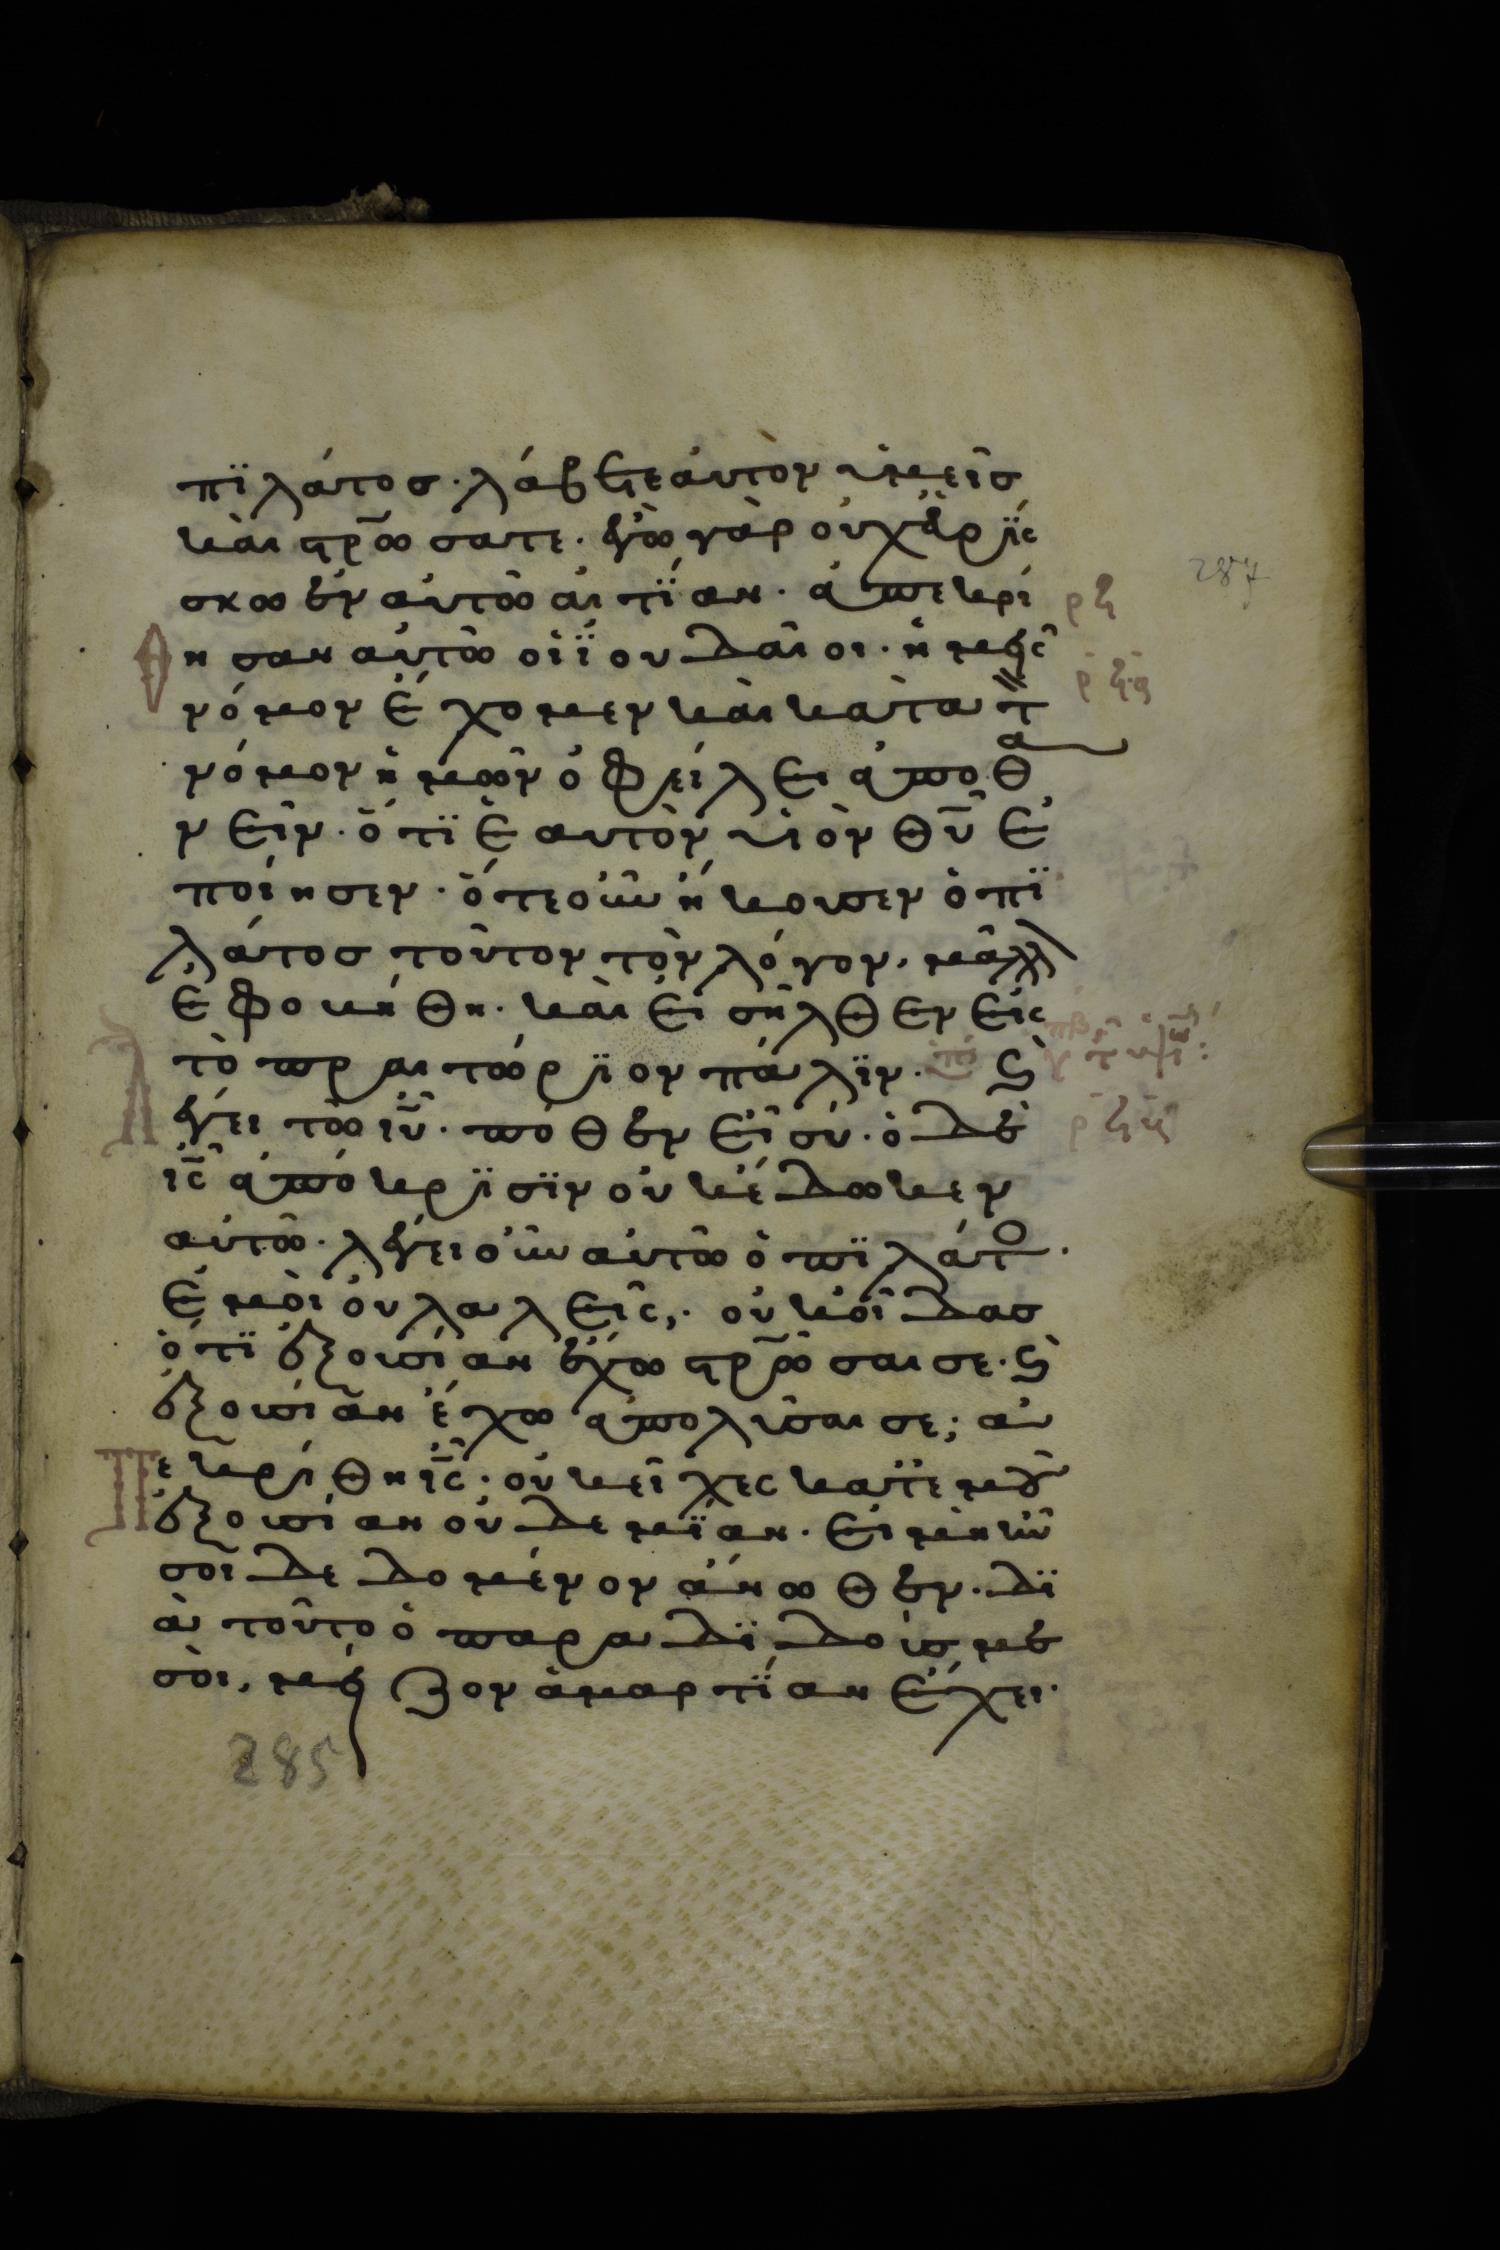 πϊλάτος· λάβετε ἀυτὸν ὑμεῖς
καὶ στρ̅ώσατε· ἐγὼ γὰρ οὐχ ἑυρΐς
σκω ἐν αὐτῶ αἰτΐαν· ἀπεκρί
θησαν αὐτῶ οἱ ϊουδαῖοι· ἡμεῖς
νόμον ἔχομεν καὶ κατὰ τ̀
νόμον ἡμῶν ὀφείλει ἀποθα
νεῖν· ὅτϊ ἑαυτὸν υἱὸν θ̅υ̅ ἐ
ποίησεν· ὅτε οὖν ἤκουσεν ὁ πϊ
λάτος τοῦτον τὸν λόγον, μᾶλλ
ἐφοβήθη· καὶ εἰσῆλθεν εἰς
τὸ πραιτώρϊον πάλϊν· ϛ̀
λέγει τῶ ι̅υ̅· πόθεν εἶ σύ· ὁ δὲ
ι̅ς̅ ἀπόκρϊσϊν οὐκ ἔδωκεν
αὐτῶ· λέγει οὖν αὐτῶ ὁ πϊλάτο·
ἐμοὶ οὐ λαλεῖς,· οὐκ οἶδας
ὅτϊ ἐξουσίαν ἔχω στρ̅ῶσαι σε· ϛ̀
ἐξουσίαν ἔχω ἀπολῦσαι σε; ἀ
Πεκρίθη ι̅ς̅· οὐκ εἶχες κατ' ἐμοῦ
ἐξουσίαν οὐδεμΐαν· εἰ μὴ ἦν
σοι δεδομένον ἄνωθεν· δϊ
ὰ τοῦτο ὁ παραδϊδούς με
σὸι, μείζον ἁμαρτΐαν ἔχει·
287
285